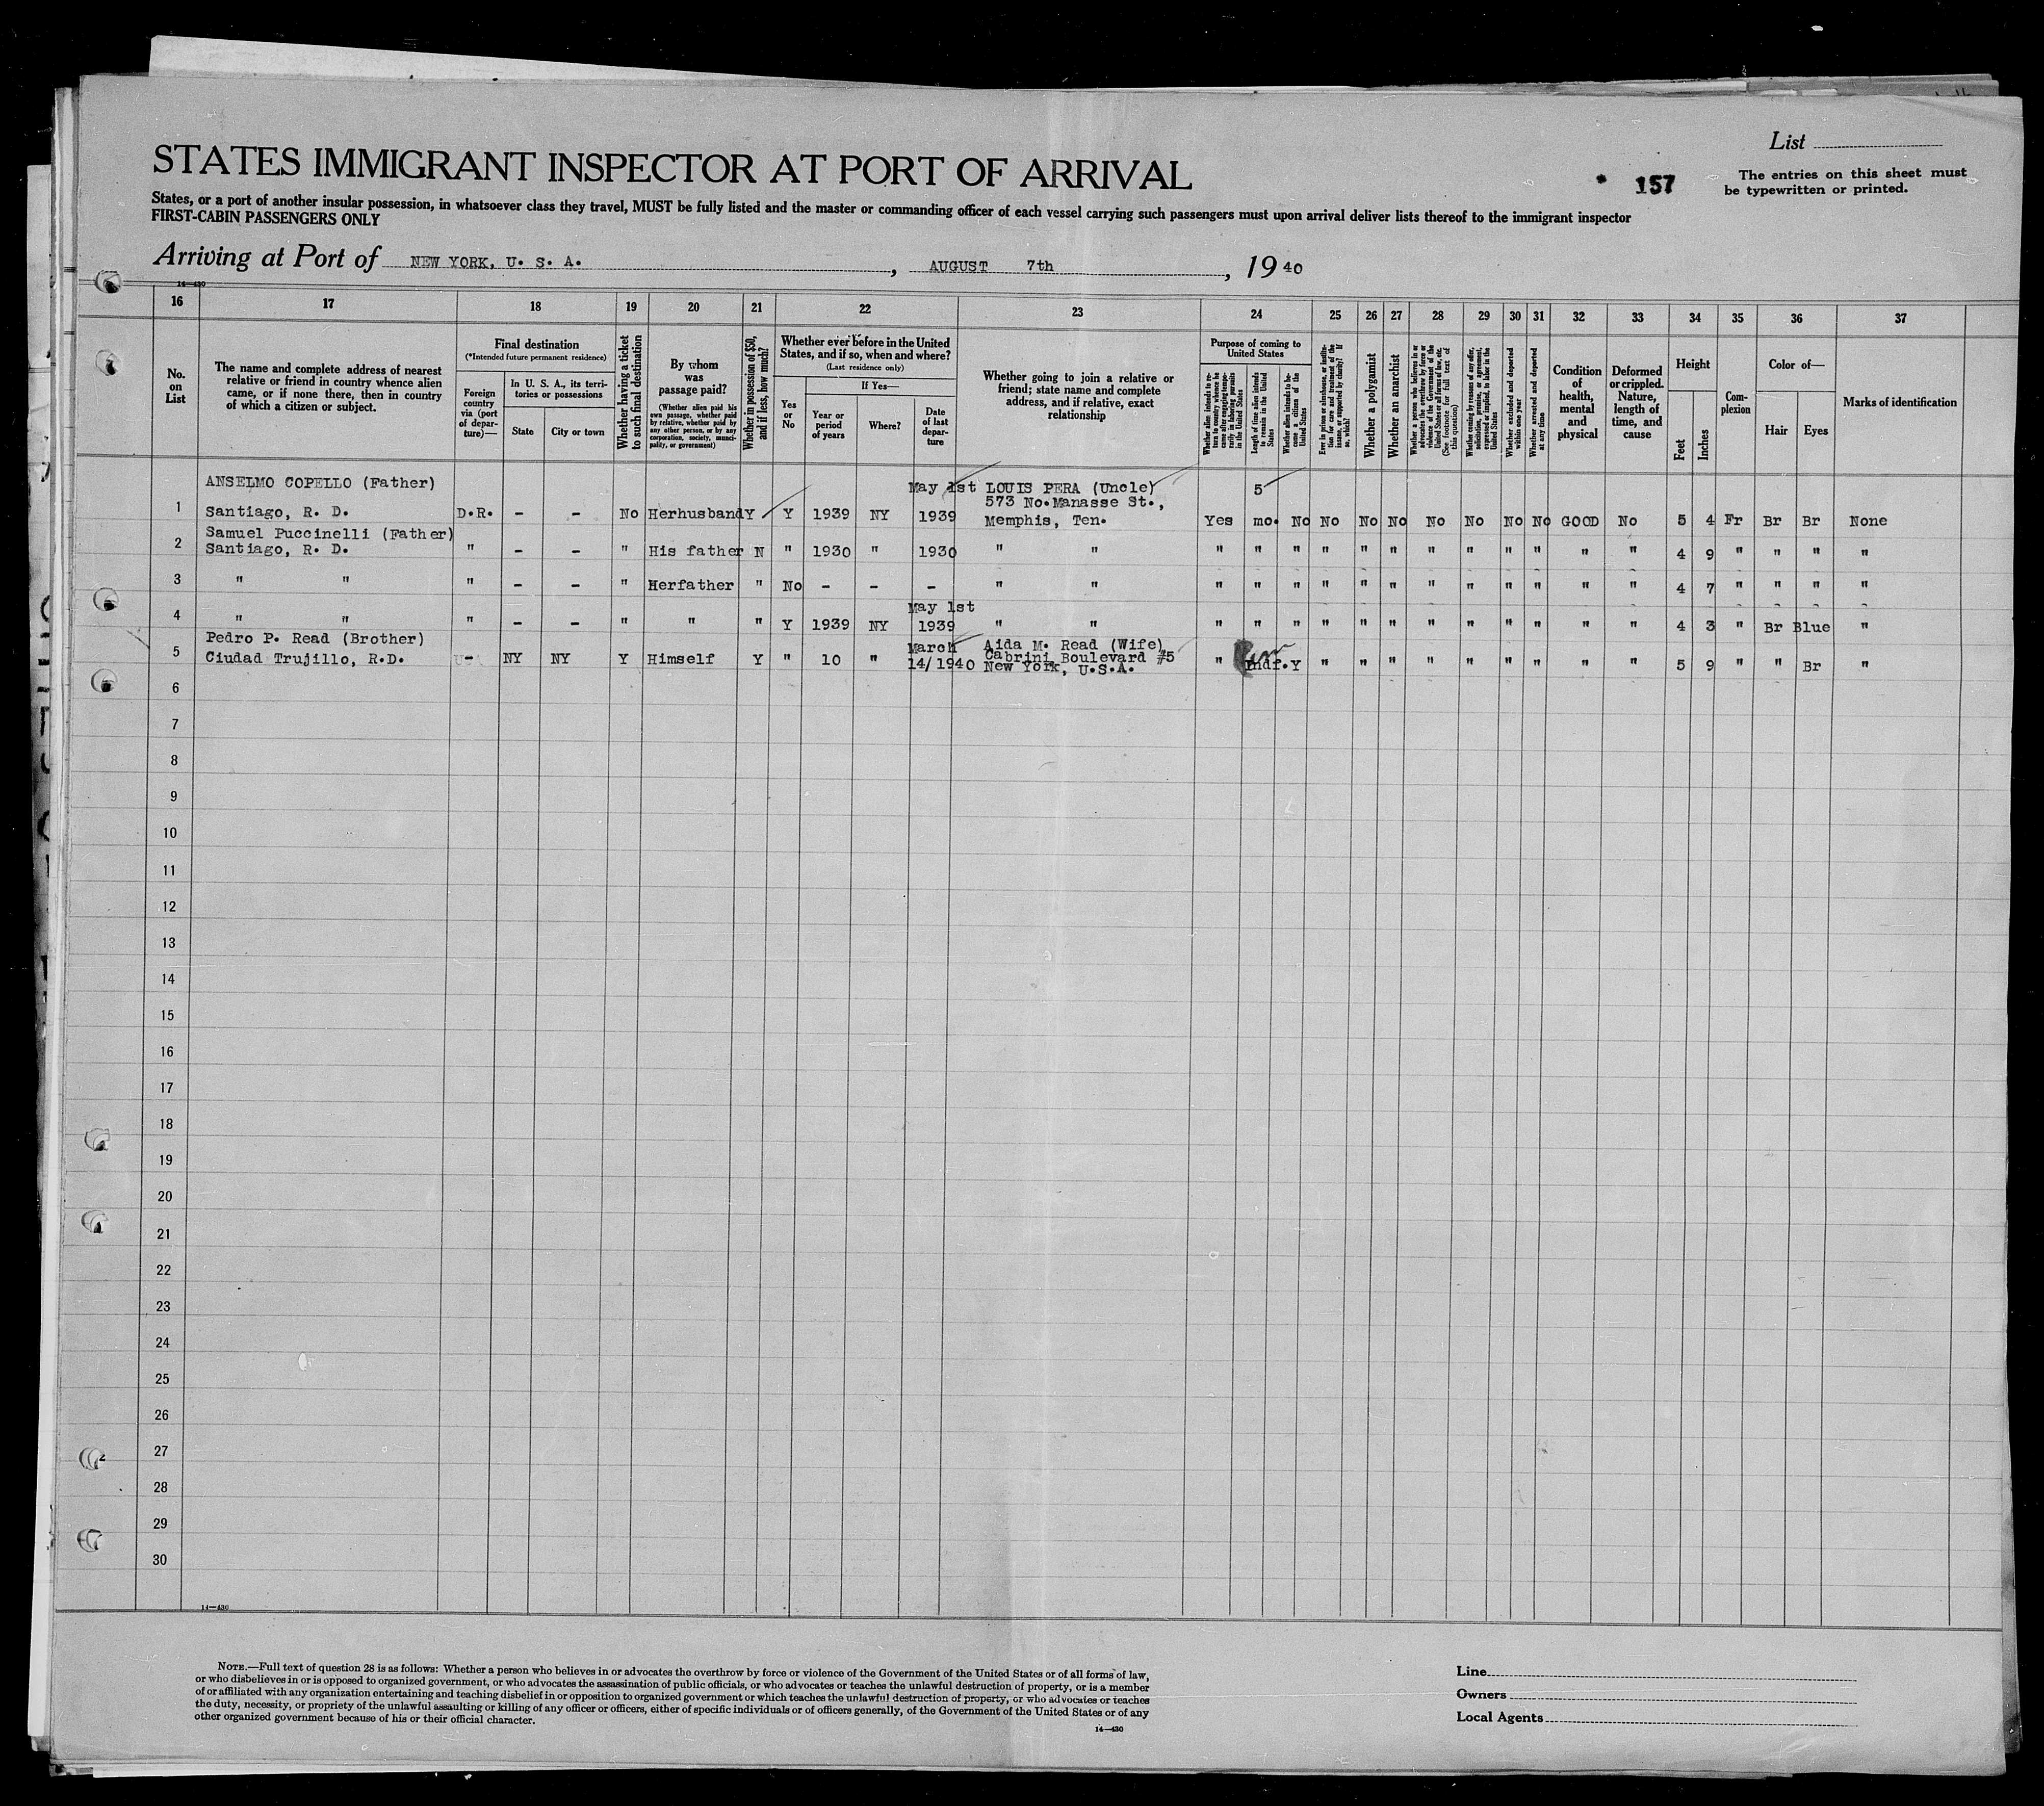 List
STATES IMMIGRANT INSPECTOR AT PORT OF ARRIVAL
157
The entries on this sheet must
be typewritten or printed.
States, or a port of another insular possession, in whatsoever class they travel, MUST be fully listed and the master or commanding officer of each vessel carrying such passengers must upon arrival deliver lists thereof to the immigrant inspector
FIRST-CABIN PASSENGERS ONLY
Arriving at Port of NEW YORK, U. S. A. , AUGUST 7th , 19 40
14—430
16 17 18 19 20 21 22 23 24 25 26 27 28 29 30 31 32 33 34 35 36 37
No. on List
The name and complete address of nearest
relative or friend in country whence alien
came, or if none there, then in country
of which a citizen or subject.
Final destination
(*Intended future permanent residence)
Foreign country via (port of departure)—
In U. S. A., its territories or possessions
State
City or town
Whether having a ticket to such final destination
By whom was passage paid?
(Whether alien paid his own passage, whether paid by relative, whether paid by any other person, or by any corporation, society, municipality, or government)
Whether in possession of $50, and if less, how much?
Whether ever before in the United States, and if so, when and where?
(Last residence only)
Yes or No
If Yes—
Year or period of years
Where?
Date of last departure
Whether going to join a relative or
friend; state name and complete
address, and if relative, exact
relationship
Purpose of coming to United States
Whether alien intends to return to country whence he came after engaging temporarily in laboring pursuits in the United States
Length of time alien intends to remain in the United States
Whether alien intends to become a citizen of the United States
Ever in prison or almshouse, or institution for care and treatment of the insane, or supported by charity? If so, which?
Whether a polygamist
Whether an anarchist
Whether a person who believes in or advocates the overthrow by force or violence of the Government of the United States or all forms of law, etc. (See footnote for full text of this question)
Whether coming by reasons of any offer, solicitation, promise, or agreement, expressed or implied, to labor in the United States
Whether excluded and deported within one year
Whether arrested and deported at any time
Condition of health, mental and physical
Deformed or crippled. Nature, length of time, and cause
Height
Feet
Inches
Complexion
Color of—
Hair
Eyes
Marks of identification
ANSELMO COPELLO (Father) May 1st LOUIS PERA (Uncle) 5
573 No.Manasse St.,
1 Santiago, R. D. D.R. - - No Herhusband Y Y 1939 NY 1939 Memphis, Ten. Yes mo. No No No No No No No No GOOD No 5 4 Fr Br Br None
Samuel Puccinelli (Father)
2 Santiago, R. D. " - - " His father N " 1930 " 1930 " " " " " " " " " " " " " " 4 9 " " " "
3 " " " - - " Herfather " No - - - " " " " " " " " " " " " " " 4 7 " " " "
May 1st
4 " " " - - " " " Y 1939 NY 1939 " " " " " " " " " " " " " " 4 3 " Br Blue "
Pedro P. Read (Brother) March Aida M. Read (Wife)
Cabrini Boulevard #5
5 Ciudad Trujillo, R.D. - NY NY Y Himself Y " 10 " 14/1940 New York, U.S.A. " indf. Y " " " " " " " " " 5 9 " " Br "
6
7
8
9
10
11
12
13
14
15
16
17
18
19
20
21
22
23
24
25
26
27
28
29
30
14—430
NOTE.—Full text of question 28 is as follows: Whether a person who believes in or advocates the overthrow by force or violence of the Government of the United States or of all forms of law,
or who disbelieves in or is opposed to organized government, or who advocates the assassination of public officials, or who advocates or teaches the unlawful destruction of property, or is a member
of or affiliated with any organization entertaining and teaching disbelief in or opposition to organized government or which teaches the unlawful destruction of property, or who advocates or teaches
the duty, necessity, or propriety of the unlawful assaulting or killing of any officer or officers, either of specific individuals or of officers generally, of the Government of the United States or of any
other organized government because of his or their official character.
14—430
Line
Owners
Local Agents